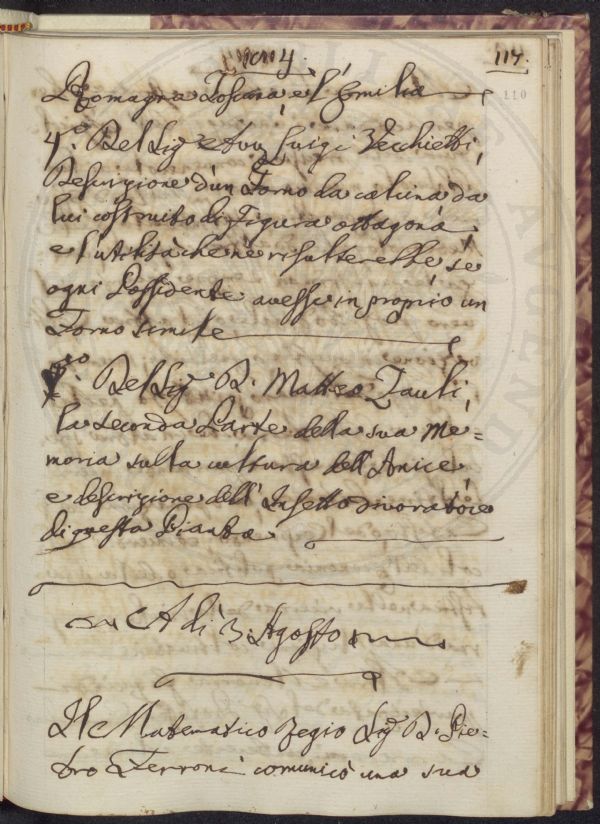 1794
114.
110
Romagna Toscana, e l'Emilia
4.° Del Sig.e Avv. Luigi Vecchietti,
Descrizione d'un Forno da calcina da
lui costruito di Figura ottagona
e l'utilità che ne risulterebbe se
ogni Possidente avesse in proprio un
Forno simile
Del Sig.e D. Matteo Zauli,
la seconda Parte della sua Me=
moria sulla cultura dell'Anice
e descrizione dell'Insetto divoratore
di questa Pianta
A dì 3. Agosto
Il Matematico Regio Sig.e D. Pie=
tro Ferroni comunicò una sua